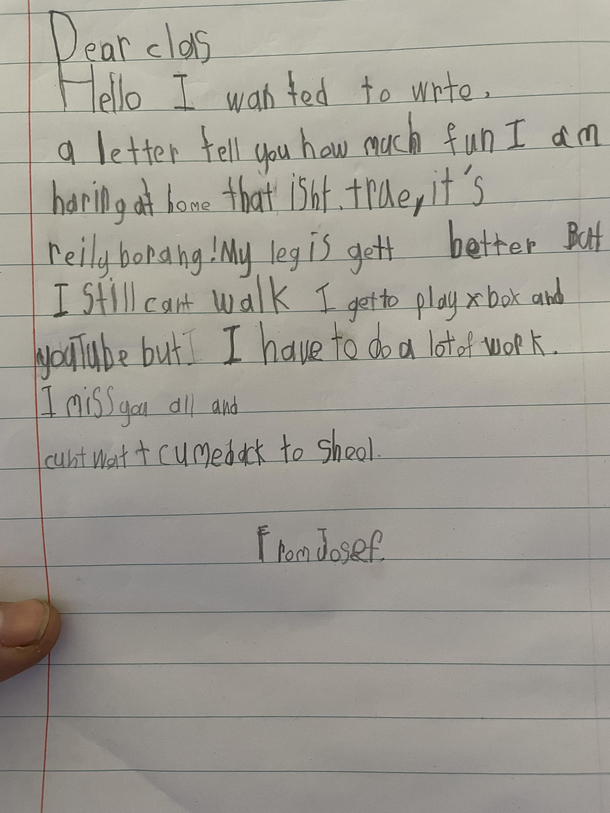 Dear clas
Hello I wanted to wrte.
a letter tell you how much fun I am
haring at home that isht. true, it's
reily borang! My leg is gett better But
I still cant walk I get to play xbox and
youTube but I I have to do a lot of work.
I miss you all and
cuht wat t cumeback to sheol.
From Josef.